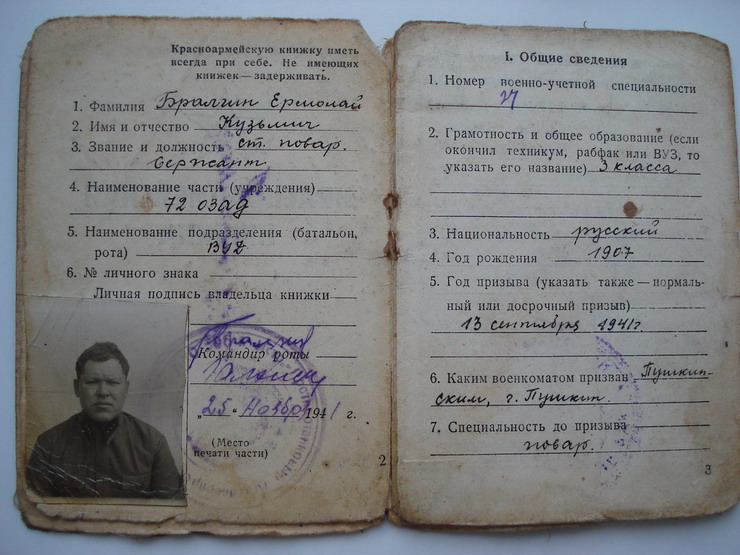 Красноармейскую книжку иметь
всегда при себе. Не имеющих
книжек — задерживать.
1. Фамилия Бралгин Ермолай
2. Имя и отчество Кузьмич
3. Звание и должность ст. повар.
сержант
4. Наименование части (учреждения)
72 ОЗАД
5. Наименование подразделения (батальон,
рота) ВУД
6. № личного знака
Личная подпись владельца книжки
Командир роты
„25" Ноября 1941 г.
(Место
печати части)
2
I. Общие сведения
1. Номер военно-учетной специальности
2. Грамотность и общее образование (если
окончил техникум, рабфак или ВУЗ, то
указать его название) 3 класса
3. Национальность русский
4. Год рождения 1907
5. Год призыва (указать также — нормаль-
ный или досрочный призыв)
13 сентября 1941 г.
6. Каким военкоматом призван Пушкин-
ским, г. Пушкин.
7. Специальность до призыва
повар.
3